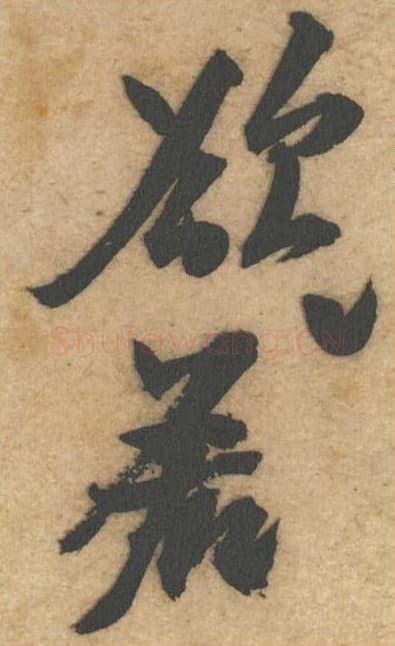 欲
着
Shufawang.cn